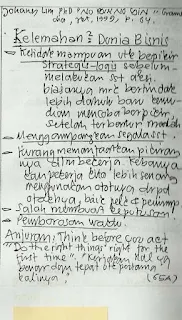 Johanes Lim PhD
dia, Jkt, 1999), P. 54.
Kelemahan² Dunia Bisnis
- Ketidak mampuan utk berpikir
Strategic-logis sebelum
melakukan sst aksi.
biasanya mrk bertindak
lebih dahulu baru kemu-
dian mencoba berpikir
setelah terbentur masalah
- Menggampangkan segala sst.
- Kurang memanfaatkan pikiran
nya dlm bekerja. Kebanya
dan pekerja lebih senang
menggunakan ototnya drpd
otaknya, baik pek² & pemimp
- Salah membuat keputusan.
- Pemborosan waktu.
Anjuran: Think before you act
"Do the right things right for the
first time". "Kerjakan hal yg
benar dgn tepat utk pertama
kalinya."